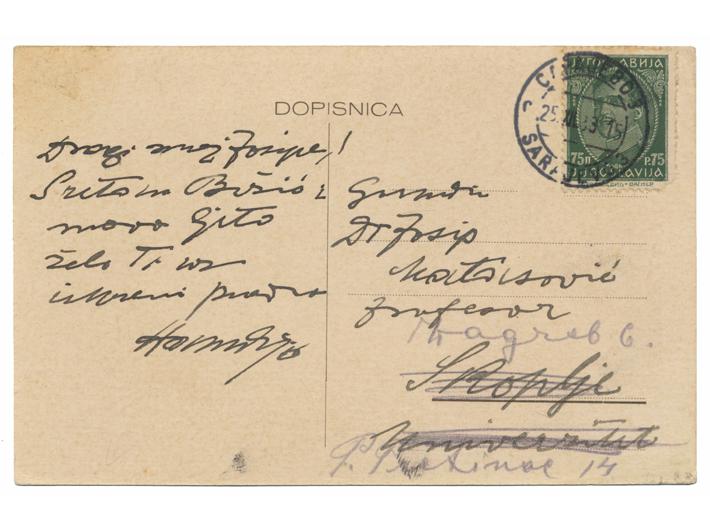 DOPISNICA
ЈУГОСЛАВИЈА
75П P.75
JUGOSLAVIJA
25.XII.33.15
SARAJEVO 3
Dragi moj Josipe!
Sretan Božić i
novo ljeto
želi Ti uz
iskreni pozdrav
Gospodin
Dr Josip
Matasović
profesor
Zagreb 6.
Skoplje
Univerzitet
14